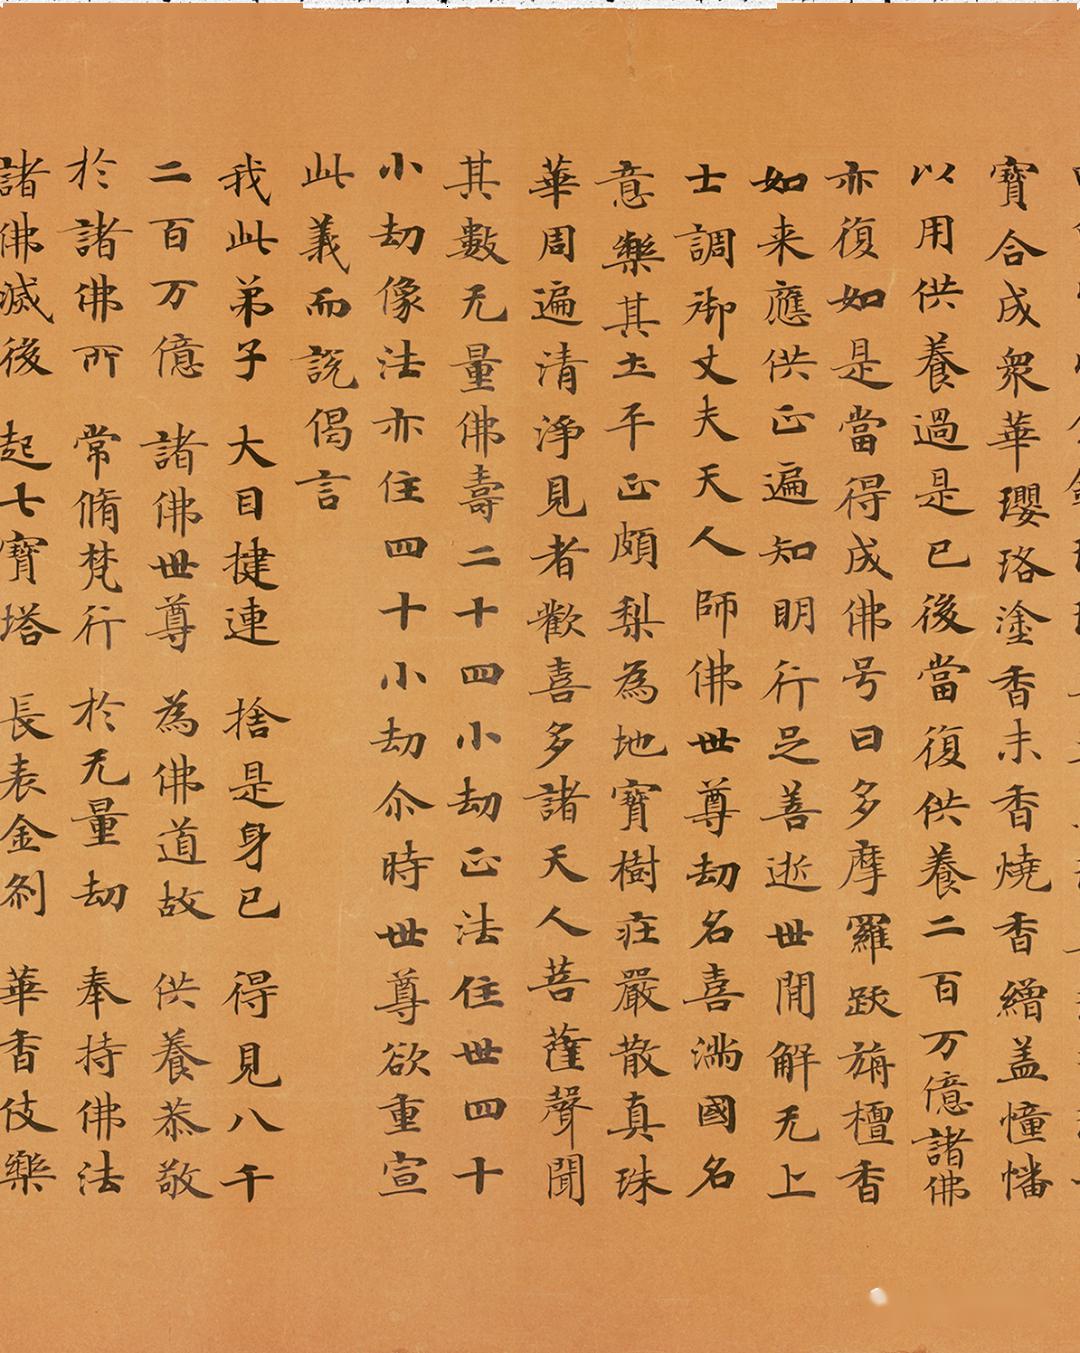 寶合成衆華瓔珞塗香末香燒香繒盖憧幡
以用供養過是已後當復供養二百万億諸佛
亦復如是當得成佛号曰多摩羅跋旃檀香
如来應供正遍知明行足善逝世閒解无上
士調御丈夫天人師佛世尊劫名喜満國名
意樂其玉平正頗梨為地寶樹㽵嚴散真珠
華周遍清淨見者歡喜多諸天人菩薩聲聞
其數无量佛壽二十四小劫正法住世四十
小劫像法亦住四十小劫尒時世尊欲重宣
此義而說偈言
我此弟子 大目揵連 捨是身已 得見八千
二百万億 諸佛世尊 為佛道故 供養恭敬
於諸佛所 常脩梵行 於无量劫 奉持佛法
諸佛滅後 起七寶塔 長表金刹 華香伎樂